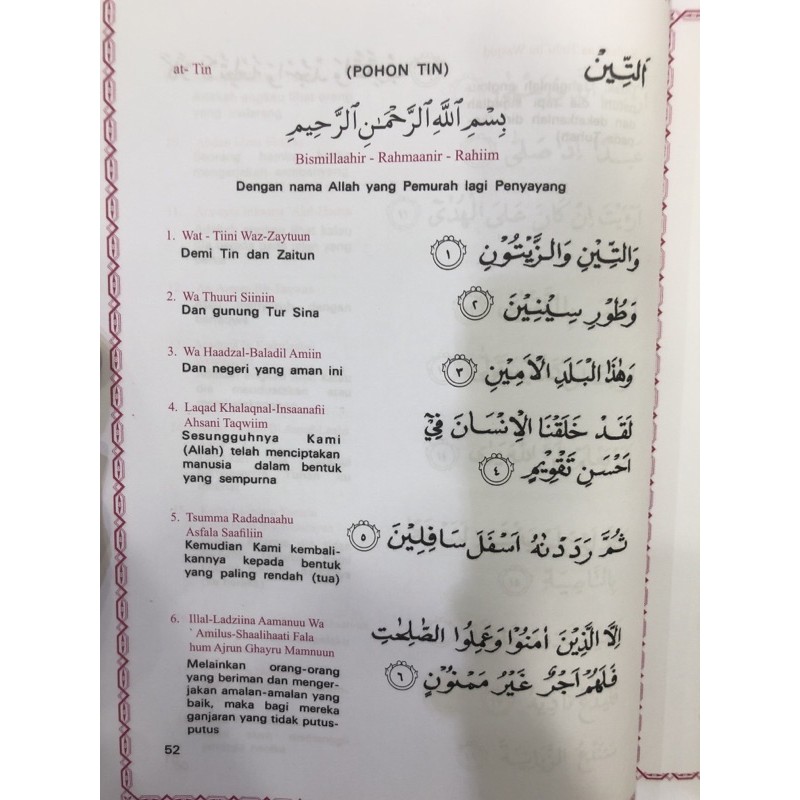 at- Tin (POHON TIN) اَلتِّيْنِ
بِسْمِ ٱللَّهِ ٱلرَّحْمَٰنِ ٱلرَّحِيمِ
Bismillaahir - Rahmaanir - Rahiim
Dengan nama Allah yang Pemurah lagi Penyayang
1. Wat - Tiini Waz-Zaytuun
Demi Tin dan Zaitun
وَالتِّيْنِ وَالزَّيْتُوْنِ ١
2. Wa Thuuri Siiniin
Dan gunung Tur Sina
وَطُوْرِ سِيْنِيْنَ ٢
3. Wa Haadzal-Baladil Amiin
Dan negeri yang aman ini
وَهٰذَا الْبَلَدِ الْاَمِيْنِ ٣
4. Laqad Khalaqnal-Insaanafii
Ahsani Taqwiim
Sesungguhnya Kami
(Allah) telah menciptakan
manusia dalam bentuk
yang sempurna
لَقَدْ خَلَقْنَا الْاِنْسَانَ فِيْٓ
اَحْسَنِ تَقْوِيْمٍ ٤
5. Tsumma Radadnaahu
Asfala Saafiliin
Kemudian Kami kembali-
kannya kepada bentuk
yang paling rendah (tua)
ثُمَّ رَدَدْنٰهُ اَسْفَلَ سَافِلِيْنَ ٥
6. Illal-Ladziina Aamanuu Wa
` Amilus-Shaalihaati Fala
hum Ajrun Ghayru Mamnuun
Melainkan orang-orang
yang beriman dan menger-
jakan amalan-amalan yang
baik, maka bagi mereka
ganjaran yang tidak putus-
putus
اِلَّا الَّذِيْنَ اٰمَنُوْا وَعَمِلُوا الصّٰلِحٰتِ
فَلَهُمْ اَجْرٌ غَيْرُ مَمْنُوْنٍ ٦
52